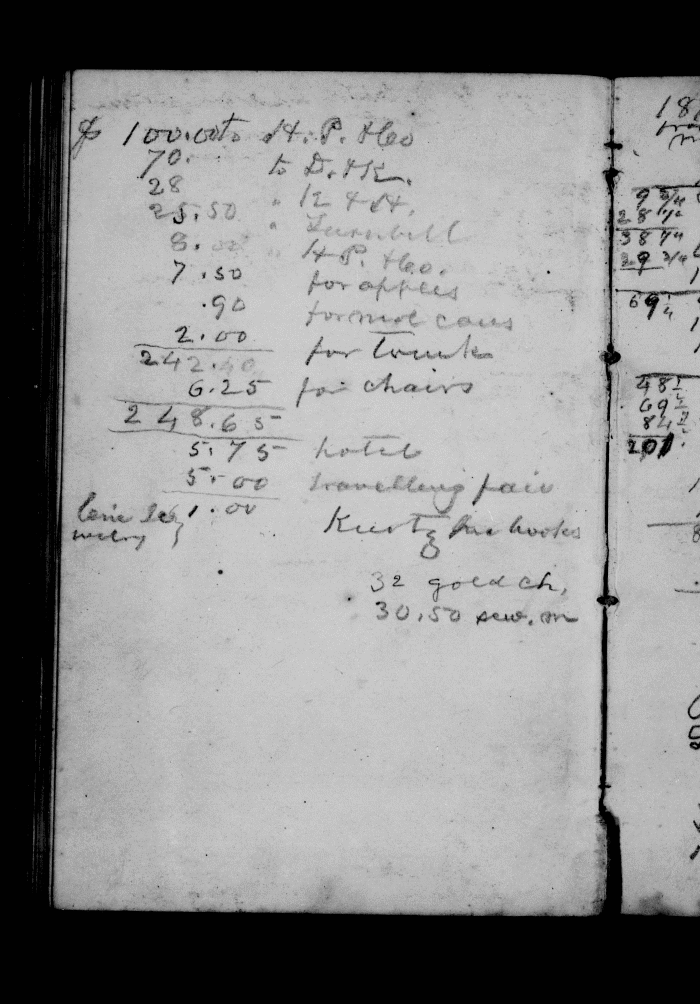 $ 100.00 to H. P. & Co
70. to D. & K.
28 " K & H.
25.50 " Turnbill
8.00 H P. & Co.
7.50 for apples
.90 for cans
2.00 for trunk
242.40
6.25 for chairs
248.65
5.75 hotel
5.00 travelling fair
1.00 Kurtz for books
32 gold ch,
30.50 sew. m
18
9 3/4
28 1/2
38 1/4
29 3/4
69 1/4
48 1/2
69 1/2
84 1/2
201